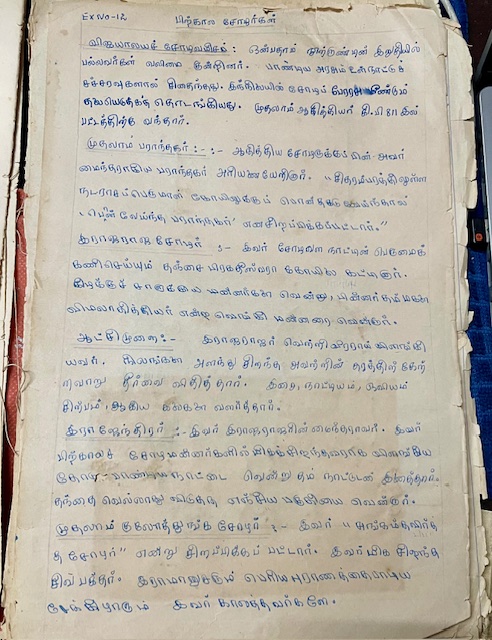 Ex No-12 பிற்கால சோழர்கள்
விஜயாலயச் சோழவம்சம் : ஒன்பதாம் நூற்றாண்டின் இறுதியில்
பல்லவர்கள் வலிமை குன்றினர். பாண்டிய அரசும் உள்நாட்டுச்
சச்சரவுகளால் சிதைந்தது. இந்நிலையில் சோழப் பேரரசு மீண்டும்
தலையெடுக்கத் தொடங்கியது. முதலாம் ஆதித்தியர் கி.பி 871 இல்
பட்டத்திற்கு வந்தார்.
முதலாம் பராந்தகர் :- :- ஆதித்திய சோழருக்குப்பின் அவர்
மைந்தராகிய பராந்தகர் அரியணையேறினார். "சிதம்பரத்திலுள்ள
நடராசப்பெருமான் கோயிலுக்குப் பொன் தகடு வேய்ந்தால்
'பொன் வேய்ந்த பராந்தகர்' என சிறப்பிக்கப்பட்டார்."
இராஜராஜ சோழர் :- இவர் சோழவள நாட்டின் பெருமைக்
கணிசெய்யும் தஞ்சை பிரகதீஸ்வரர் கோயிலை கட்டினார்.
கிழக்குச் சாளுக்கிய மன்னர்களை வென்று, பின்னர் தம் மகளை
விமலாதித்தியர் என்ற மன்னரை
ஆட்சிமுறை:- இராஜராஜர் வெற்றி வீரராய் விளங்கி
யவர். நிலங்களை அளந்து சிறந்த அவற்றின் தரத்திற் கேற்
றவாறு தீர்வை விதித்தார். இசை, நாட்டியம், ஓவியம்
சிற்பம், ஆகிய கலைகளை வளர்த்தார்.
இராஜேந்திரர் :- இவர் இராஜராஜரின் மைந்தராவர். இவர்
பிற்காலச் சோழமன்னர்களில் மிகச்சிறந்தவராக விளங்கிய
பாண்டிய நாட்டை வென்று தம் நாட்டுடன் இணைத்தார்.
தந்தை வெல்லாது விடுத்த எஞ்சிய பகுதியை வென்றார்.
முதலாம் குலோத்துங்க சோழர் :- இவர் "சுங்கம் தவிர்த்
த சோழர்" என்று சிறப்பிக்கப் பட்டார். இவர் மிக சிறந்த
சிவ பக்தர். இராமானுசரும் பெரிய புராணத்தை பாடிய
சேக்கிழாரும் இவர் காலத்தவர்களே.